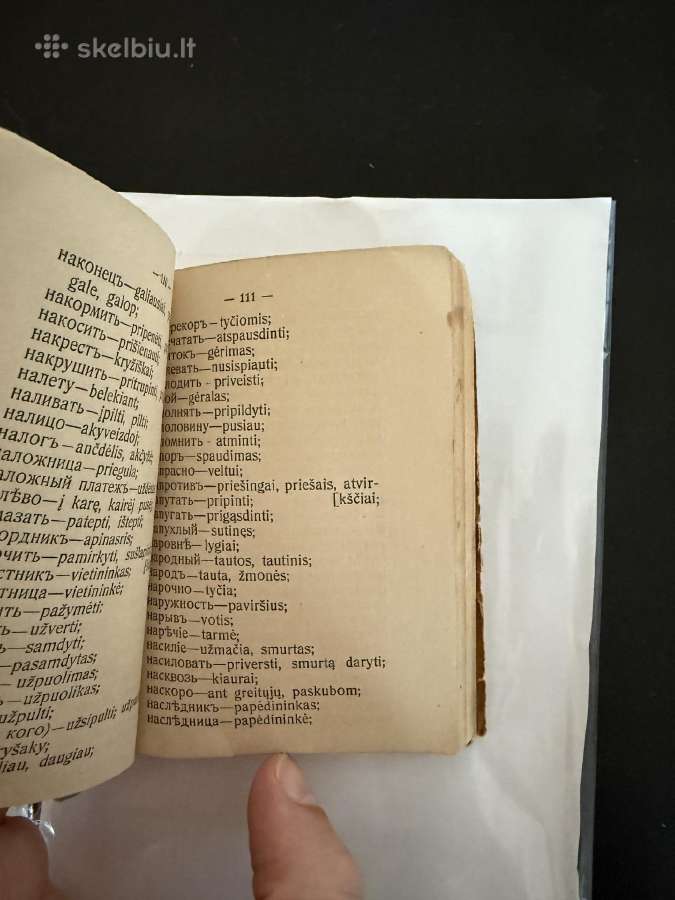 skelbiu.lt
наконецъ—galiausiai,
gale, galop;
накормить—pripenėti;
накосить—prišienauti;
накрестъ—kryžiškai;
накрушить—pritrupinti,
налету—belekiant;
наливать—įpilti, pilti;
налицо—akyveizdoj;
налогъ—ančdėlis, akčyžė;
аложница—priegula;
аложный платежъ—
лѣво—į karę, kairėj pusėj
мазать—patepti, ištepti;
ордникъ—apinasris;
очить—pamirkyti,
стникъ—vietininkas;
тница—vietininkė;
ить—pažymėti;
ь—užverti;
ь—samdyti;
—pasamdytas;
—užpuolimas;
—užpuolikas;
užpulti;
кого)—užsipulti;
ryšaky;
liau, daugiau;
— 111 —
рекоръ—tyčiomis;
чатать—atspausdinti;
итокъ—gėrimas;
левать—nusispiauti;
лодить - priveisti;
ой—gėralas;
олнять—pripildyti;
оловину—pusiau;
омнить - atminti;
оръ—spaudimas;
прасно—veltui;
апротивъ—priešingai, priešais, atvir-
апутать—pripinti; [kščiai;
апугать—prigąsdinti;
апухлый—sutinęs;
наровнѣ—lygiai;
народный—tautos, tautinis;
народъ—tauta, žmonės;
нарочно—tyčia;
наружность—paviršius;
нарывъ—votis;
нарѣчіе—tarmė;
насиліе—užmačia, smurtas;
насиловать—priversti, smurtą daryti;
насквозь—kiaurai;
наскоро—ant greitųjų, paskubom;
наслѣдникъ—papėdininkas;
наслѣдница—papėdininkė;